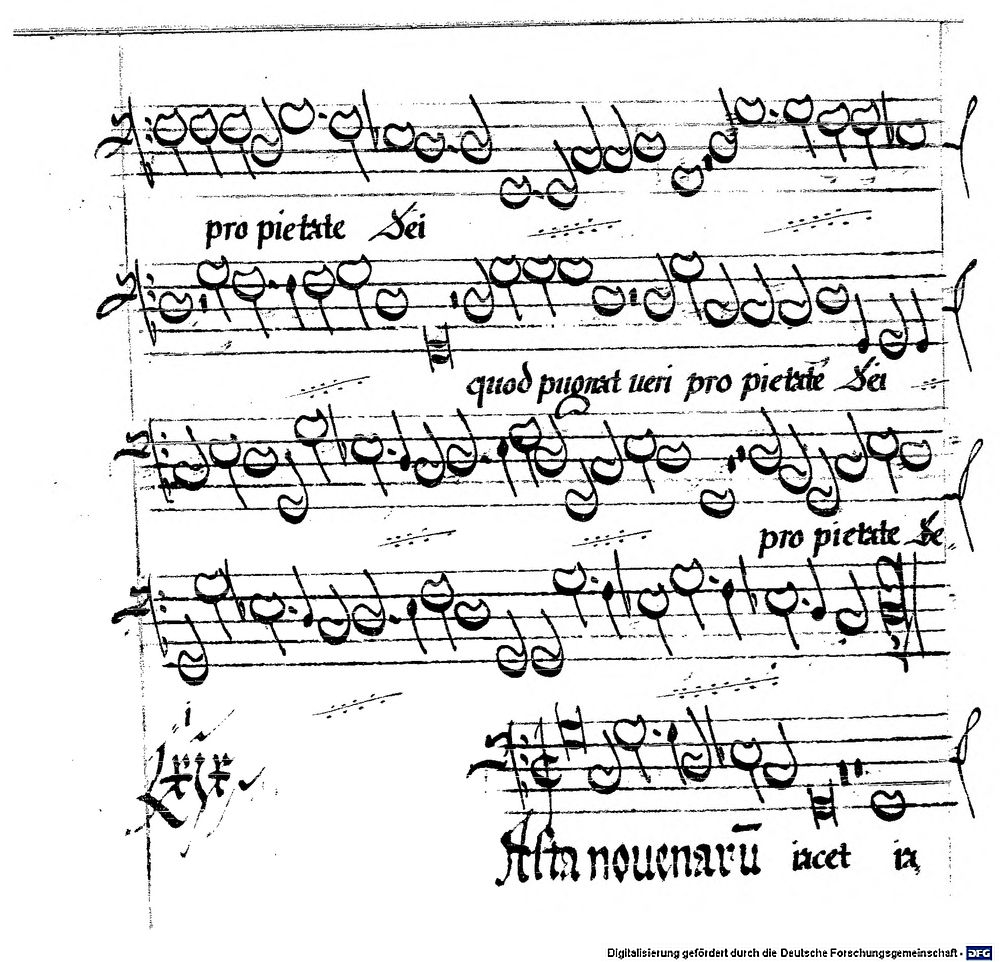 pro pietate Dei
quod pugnat ueri pro pietate Dei
pro pietate De
i
Alta nouenarū iacet ia
Digitalisierung gefördert durch die Deutsche Forschungsgemeinschaft - DFG